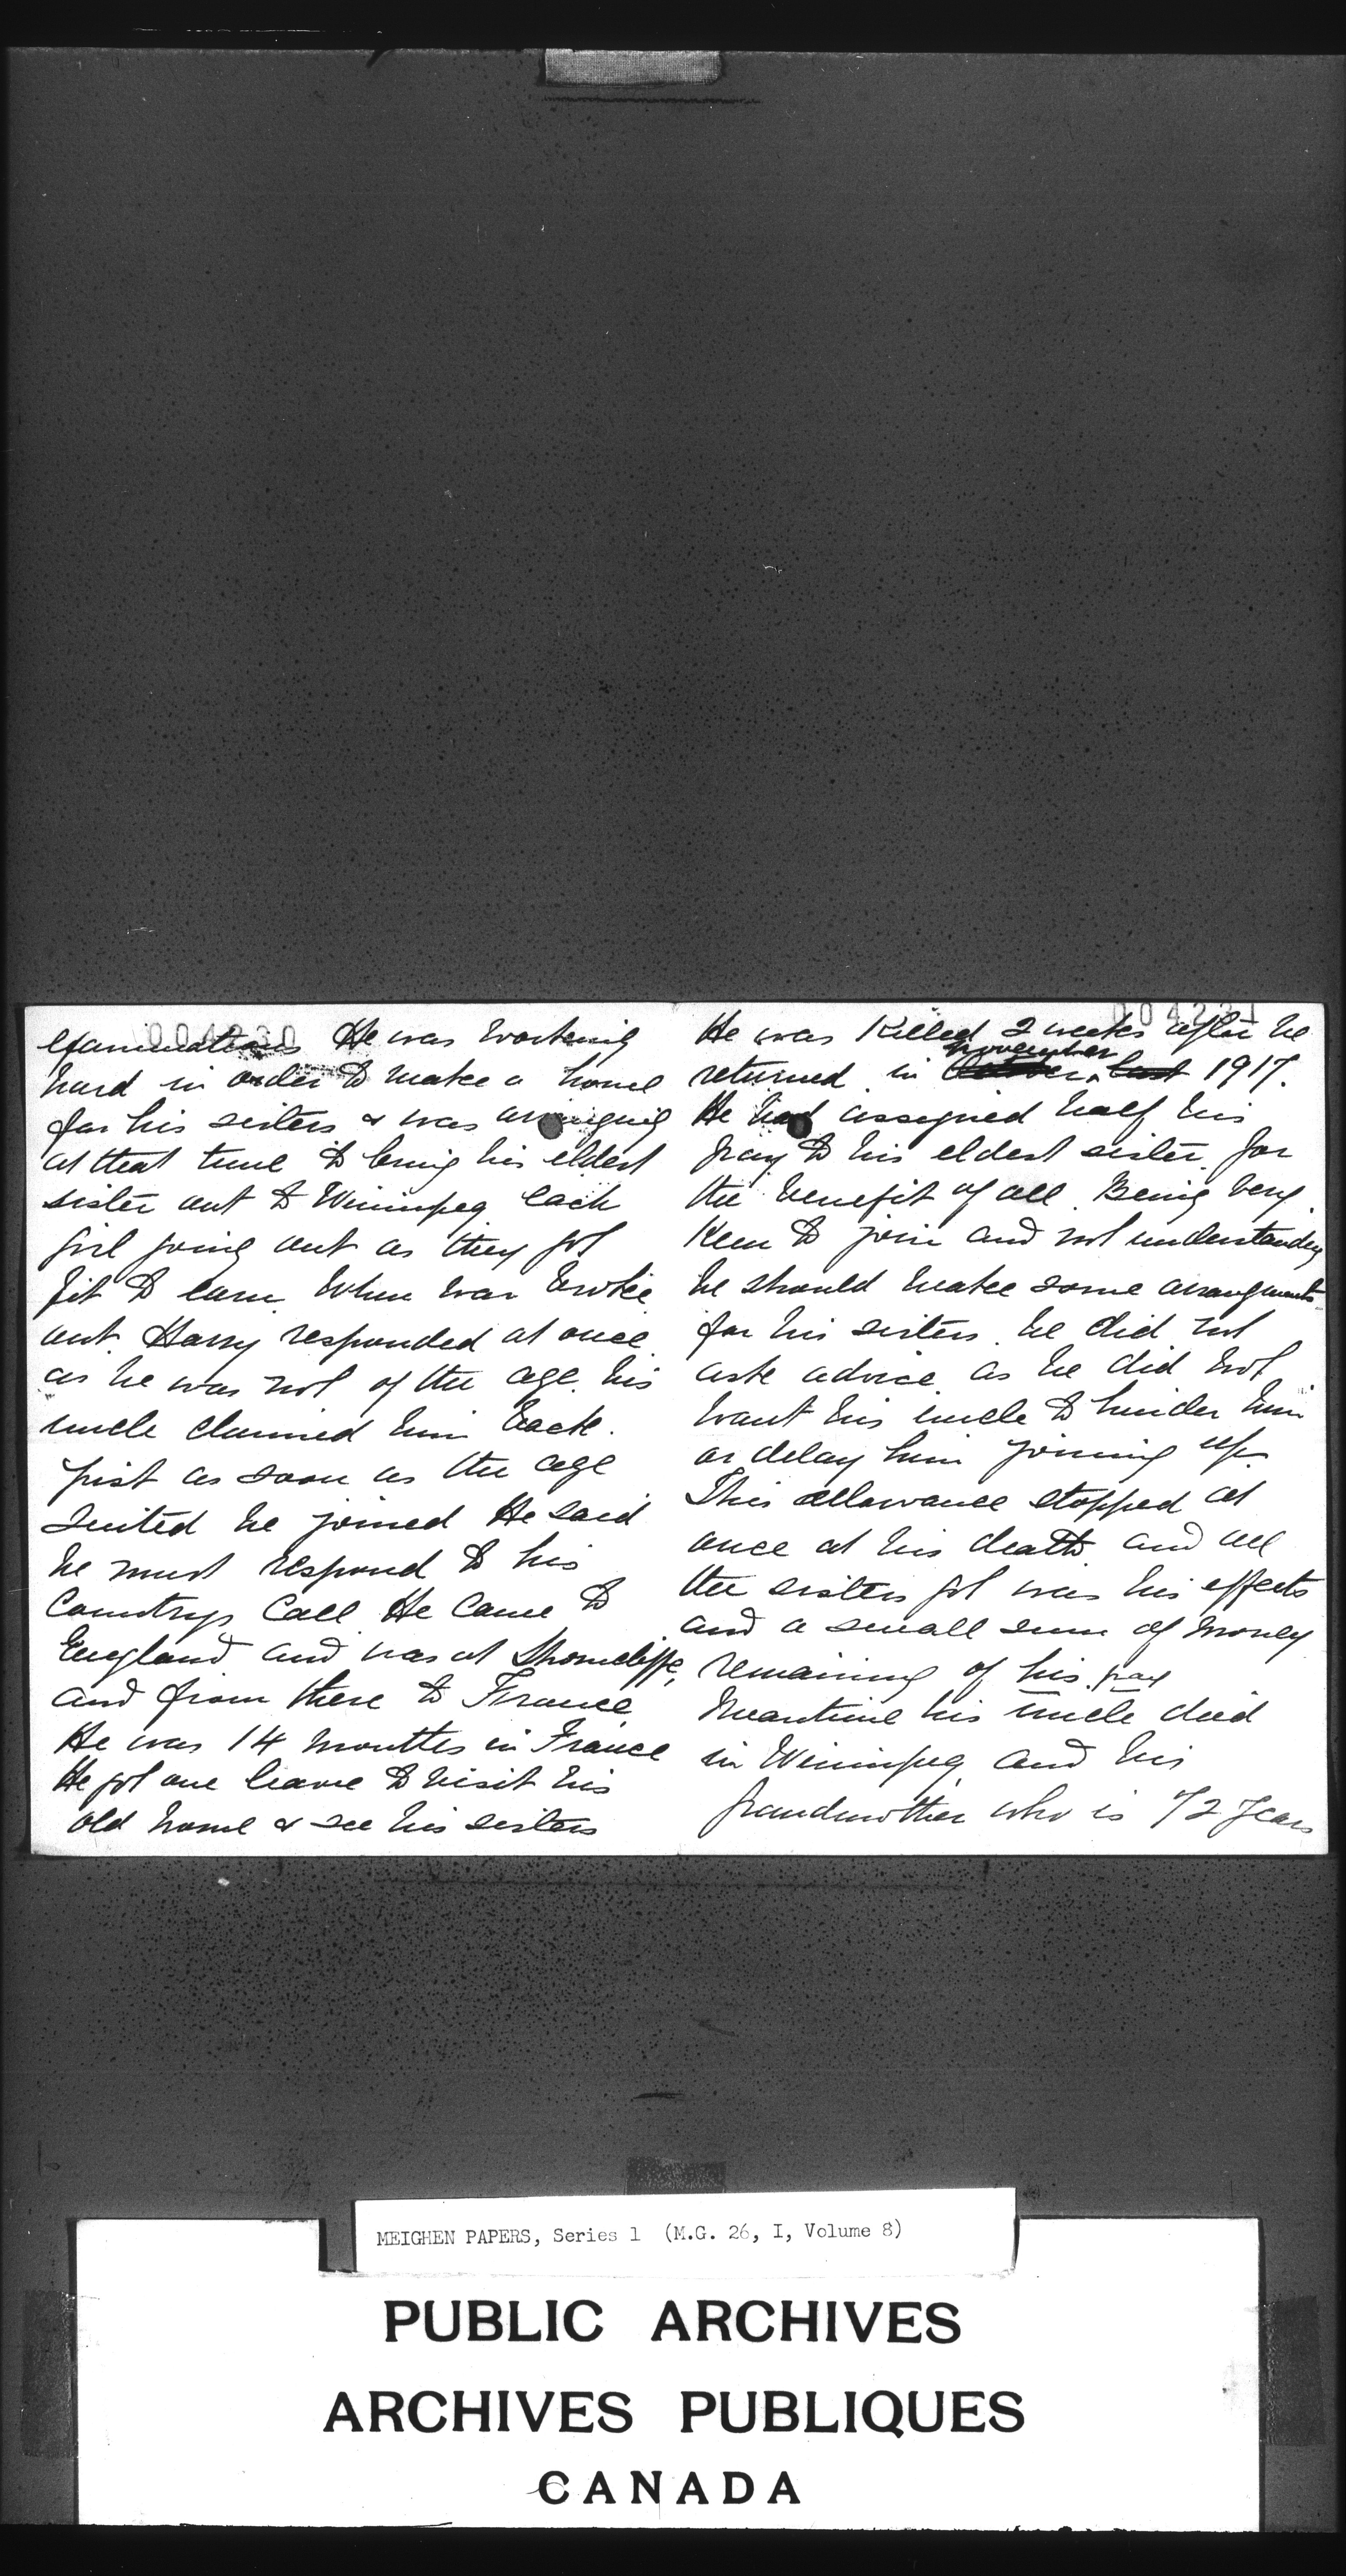 004230
examinations He was working
hard in order to make a home
for his sisters & was arranging
at that time to bring his eldest
sister out to Winnipeg each
girl going out as they got
fit to earn. When war broke
out Harry responded at once
as he was not of the age his
uncle claimed him back.
just as soon as the age
suited he joined He said
he must respond to his
Countrys Call He came to
England and was at Shorncliffe,
and from there to France
He was 14 months in France
He got one leave to visit his
old home & see his sisters
004231
He was killed 2 weeks after he
november
returned in October last 1917.
He had assigned half his
pay to his eldest sister for
the benefit of all. Being very
keen to join and not understanding
he should make some arrangments
for his sisters he did not
ask advice as he did not
want his uncle to hinder him
or delay him joining up
This allowance stopped at
once at his death and all
the sisters got was his effects
and a small sum of money
remaining of his pay
Meantime his uncle died
in Winnipeg and his
grandmother who is 72 years
MEIGHEN PAPERS, Series 1 (M.G. 26, I, Volume 8)
PUBLIC ARCHIVES
ARCHIVES PUBLIQUES
CANADA